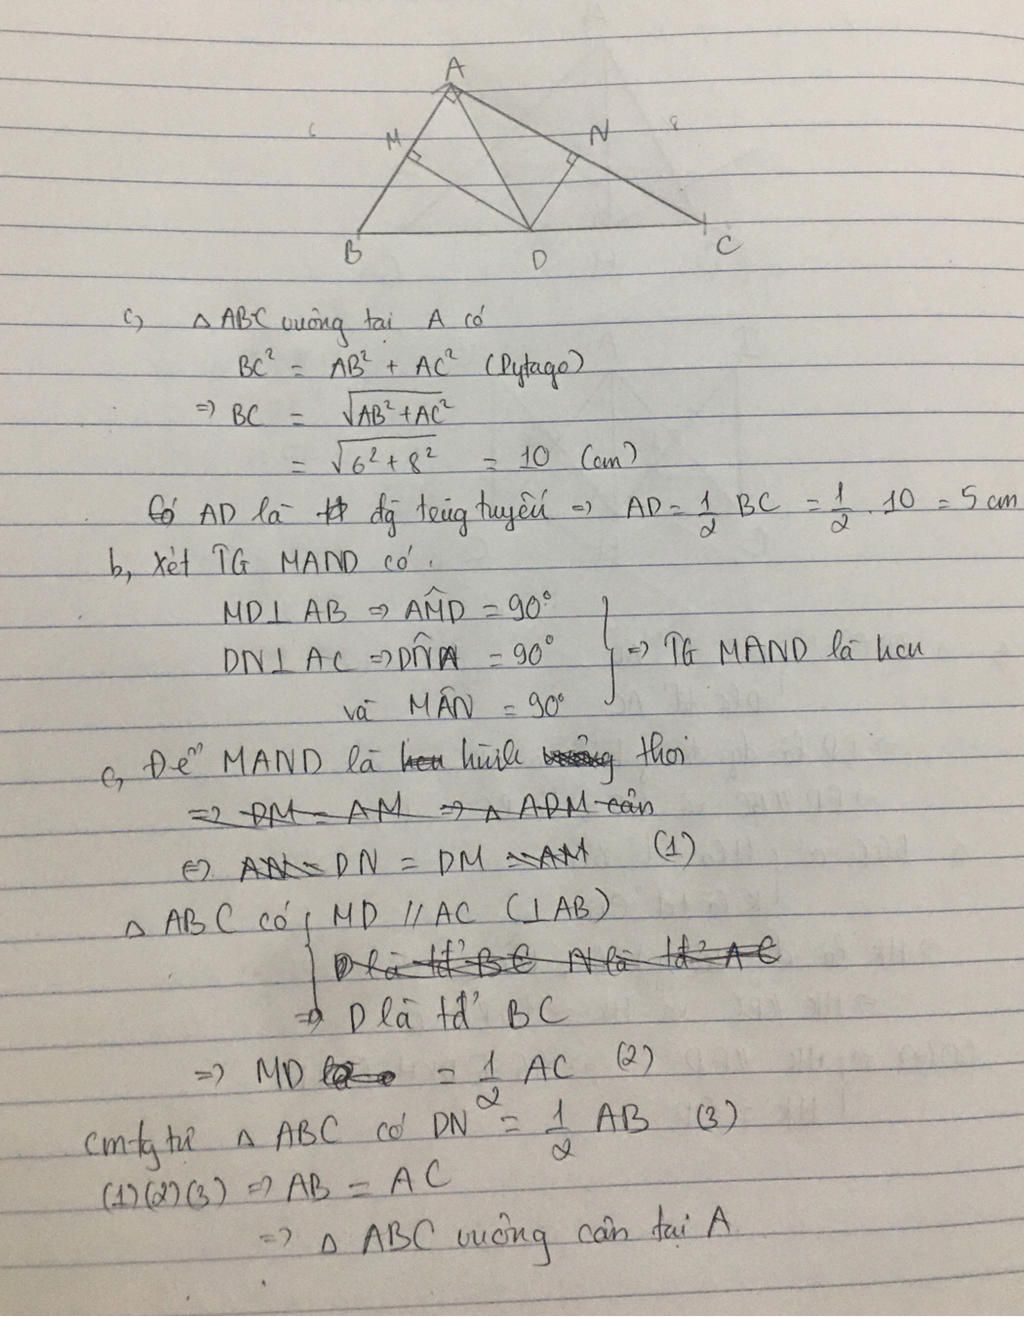 A
6 M N 8
B D C
c, △ ABC vuông tại A có
BC² = AB² + AC² (Pytago)
=> BC = √AB²+AC²
= √6²+8² = 10 (cm)
Có AD là đg trung tuyến => AD = 1/2 BC = 1/2 . 10 = 5 cm
b, Xét TG MAND có.
MD⊥ AB => AM̂D = 90°
DN⊥ AC => DN̂A = 90°
=> TG MAND là hcn
và MÂN = 90°
c, Để MAND là hcn hình vuông thoi
=> DM = AM => △ ADM cân
<=> AN = DN = DM = AM (1)
△ ABC có { MD // AC (⊥AB)
D là tđ' BC N là tđ' AC
=> D là tđ' BC
=> MD = 1/2 AC (2)
cm tg tự △ ABC có DN = 1/2 AB (3)
(1)(2)(3) => AB = AC
=> △ ABC vuông cân tại A